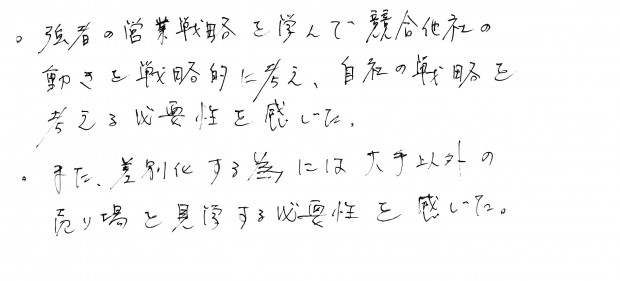 。強者の営業戦略を学んで競合他社の
動きを戦略的に考え、自社の戦略を
考える必要性を感じた。
。また、差別化する為には大手以外の
売り場を見学する必要性を感じた。